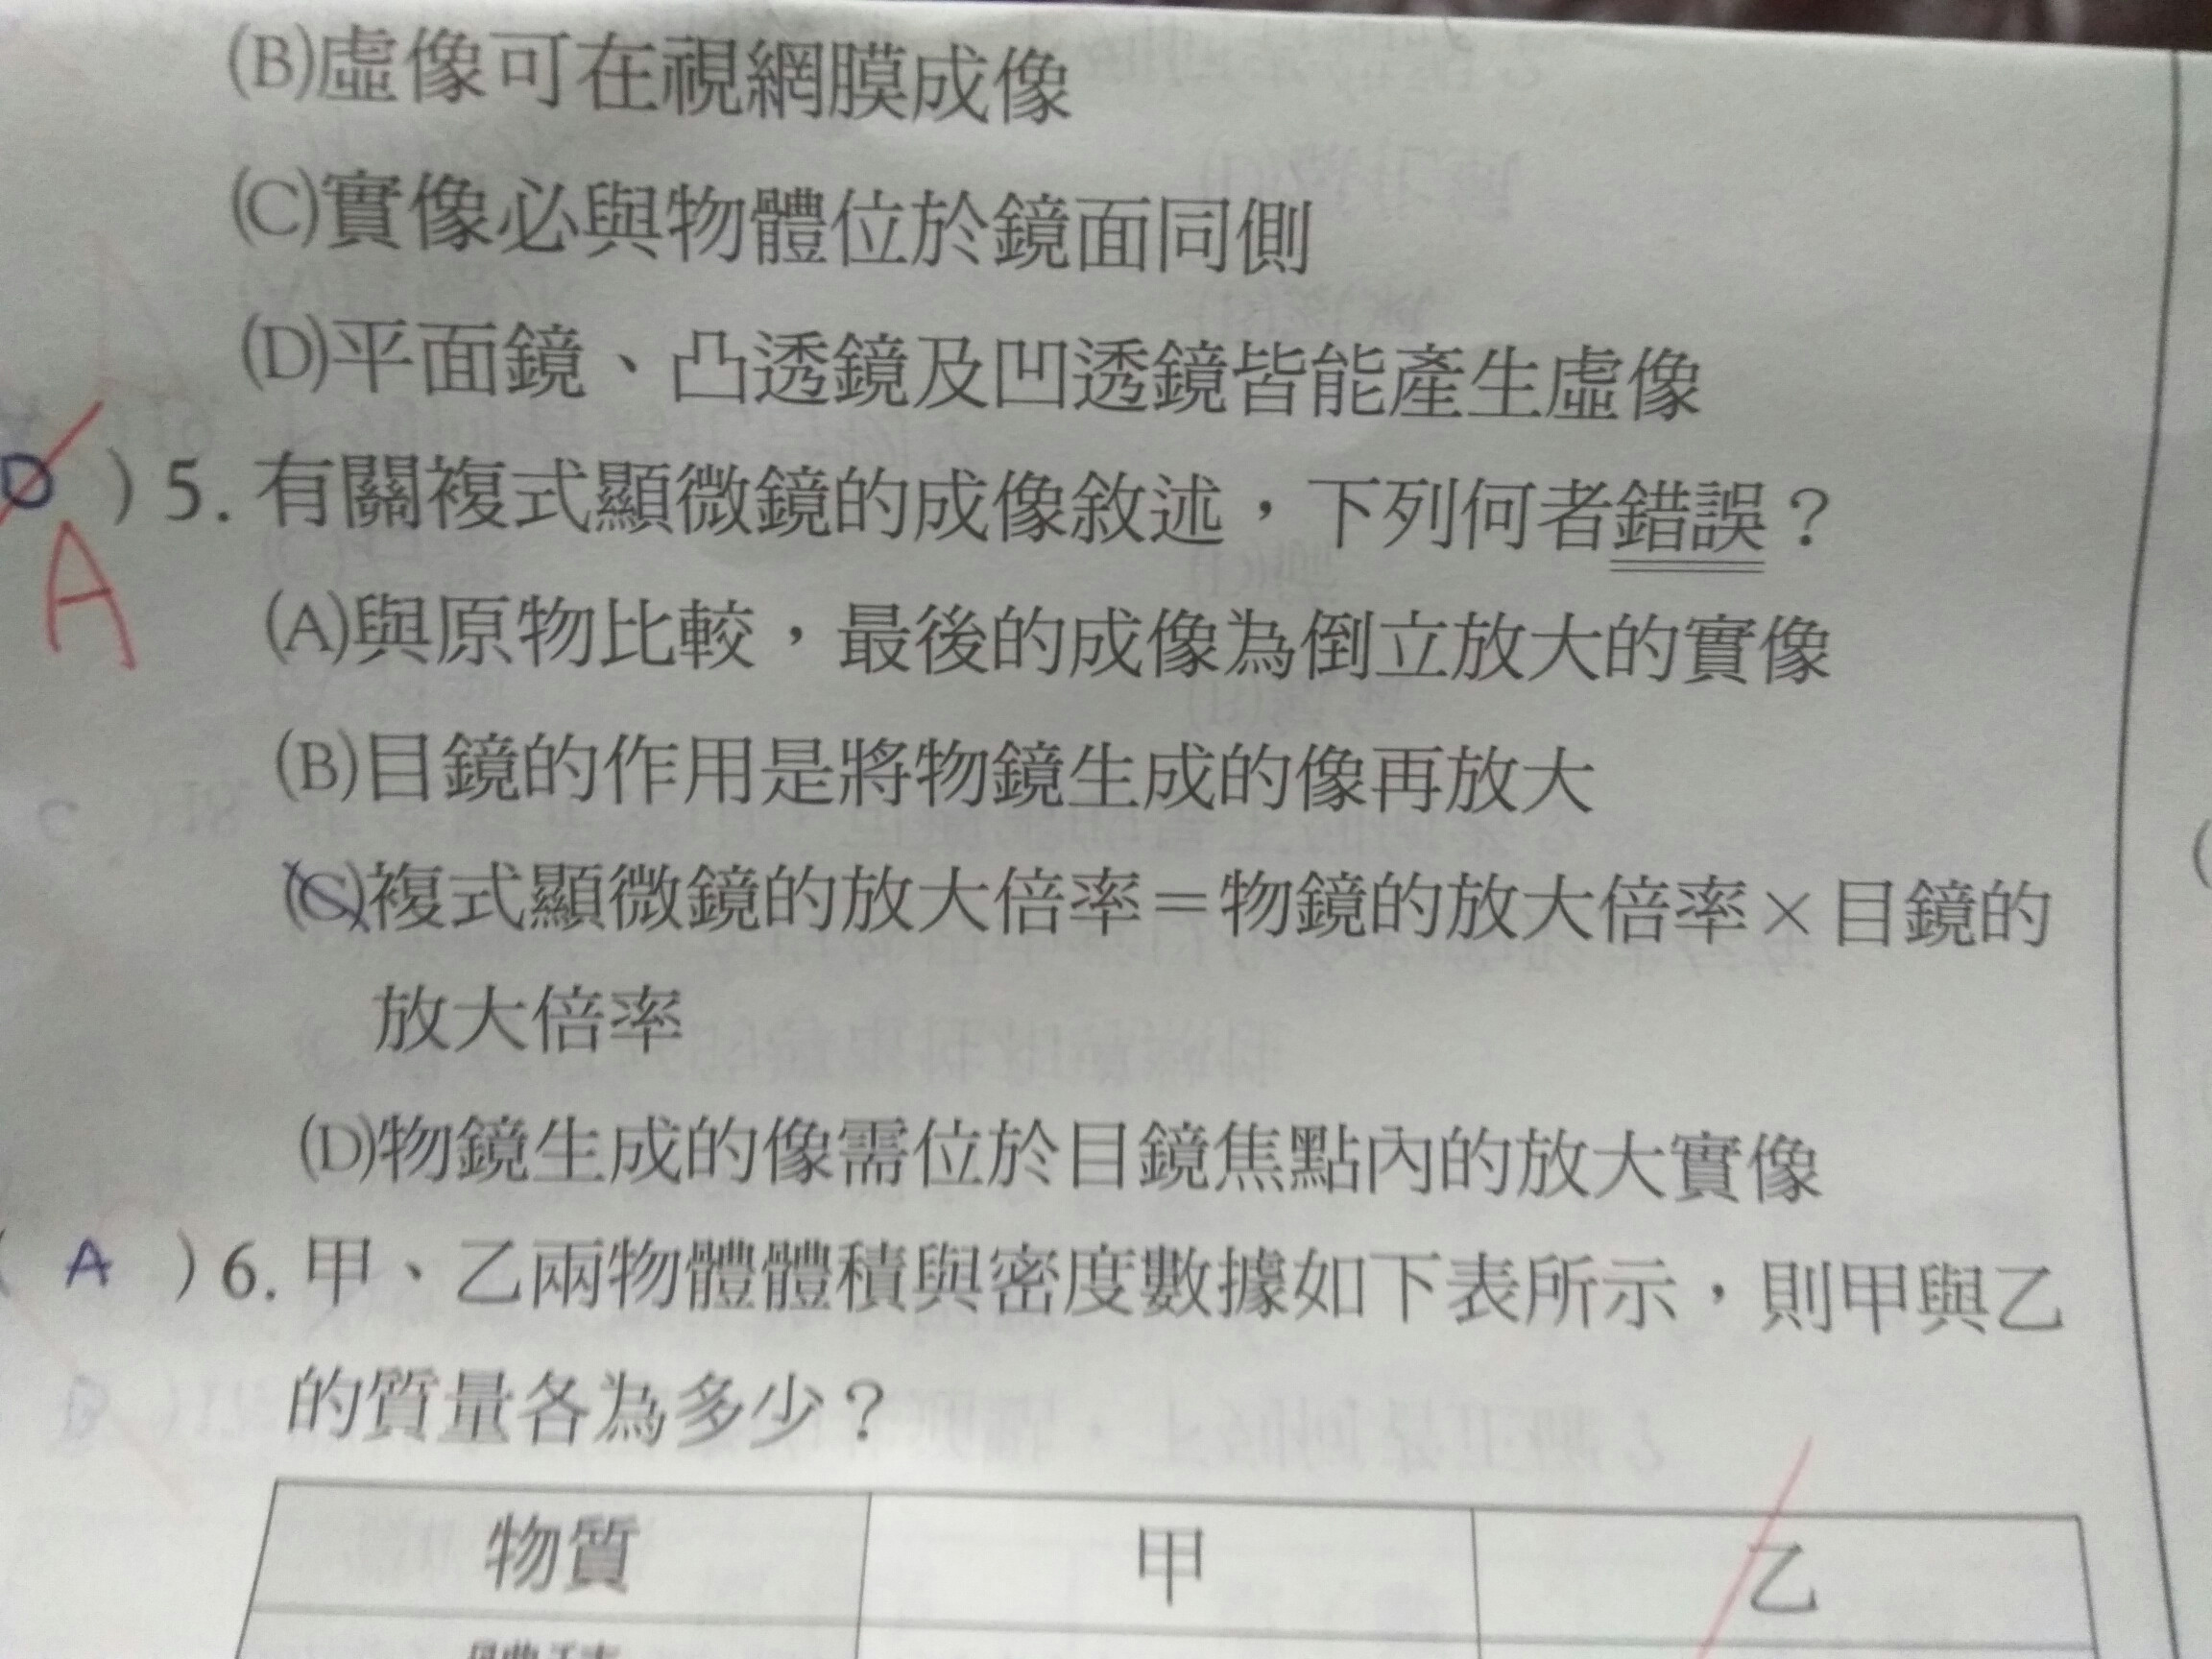 (B)虛像可在視網膜成像
(C)實像必與物體位於鏡面同側
(D)平面鏡、凸透鏡及凹透鏡皆能產生虛像
D )5. 有關複式顯微鏡的成像敘述，下列何者錯誤？
A
(A)與原物比較，最後的成像為倒立放大的實像
(B)目鏡的作用是將物鏡生成的像再放大
(C)複式顯微鏡的放大倍率＝物鏡的放大倍率×目鏡的
放大倍率
(D)物鏡生成的像需位於目鏡焦點內的放大實像
( A )6. 甲、乙兩物體體積與密度數據如下表所示，則甲與乙
的質量各為多少？
物質 甲 乙